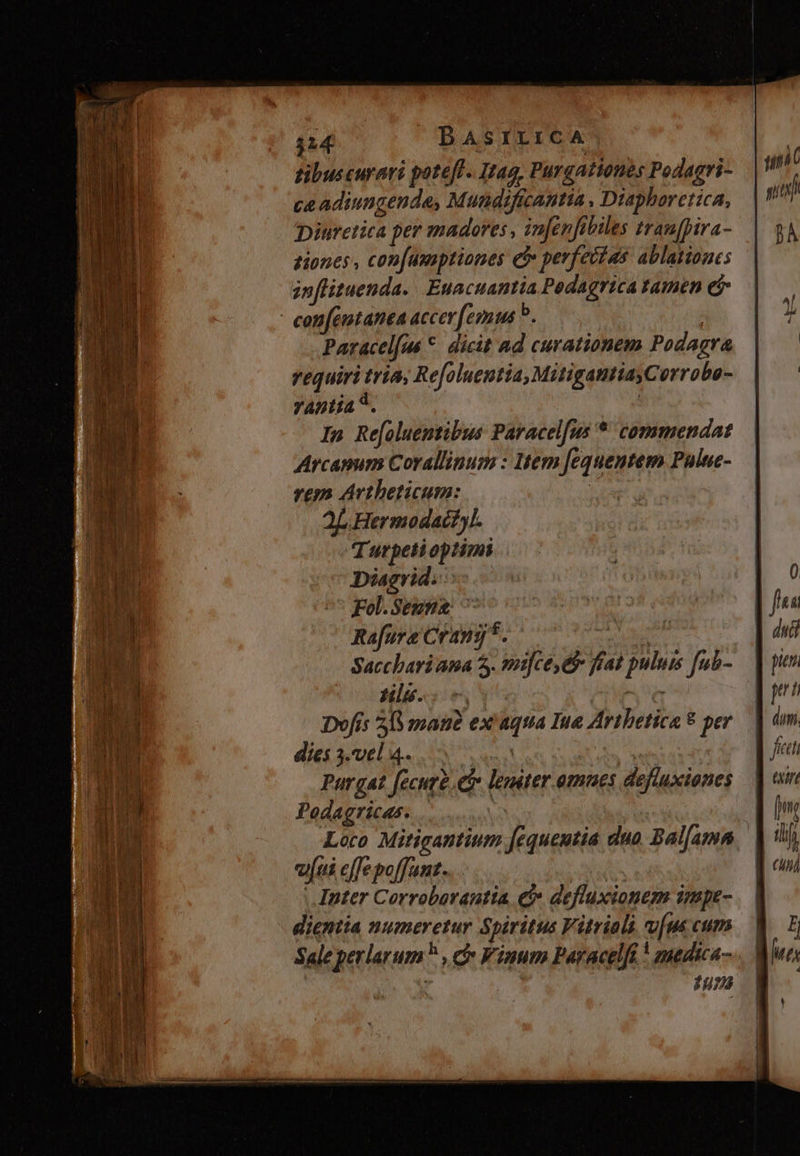 324 BASILICA
tibus curari potest. Itaq, Purgationes Podagri-
cæ adiungendæ, Mundificantia, Diaphoretica,
Diuretica per madores, insensibiles transpira-
tiones, consumptiones & perfectas ablationes
instituenda. Euacuantia Podagrica tamen &
consentanea accersemus b.
Paracelsus c dicit ad curationem Podagra
requiri tria, Resoluentia, Mitigantia, Corrobo-
rantia d.
In Resoluentibus Paracelsus e commendat
Arcanum Corallinum : Item sequentem Pulue-
rem Artheticum:
♃. Hermodactyl.
Turpeti optimi
Diagrid.
Fol. Sennæ
Rasuræ Cranij f.
Sacchari ana ʒ. misce, & fiat puluis sub-
tilis.
Dosis ʒß manè ex aqua Iuæ Arthetica g per
dies 3. vel 4.
Purgat securè & leniter omnes defluxiones
Podagricas.
Loco Mitigantium sequentia duo Balsama
usui esse possunt.
Inter Corroborantia & defluxionem impe-
dientia numeretur Spiritus Vitrioli usus cum
Sale perlarum h, & Vinum Paracelsi i medica-
tum